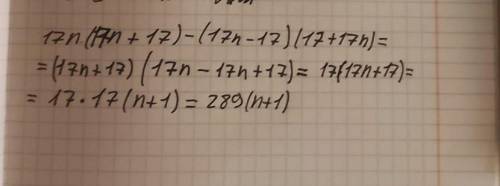 17n(17n+17)-(17n-17)(17+17n)=
=(17n+17)(17n-17n+17)= 17(17n+17)=
= 17·17(n+1)= 289(n+1)